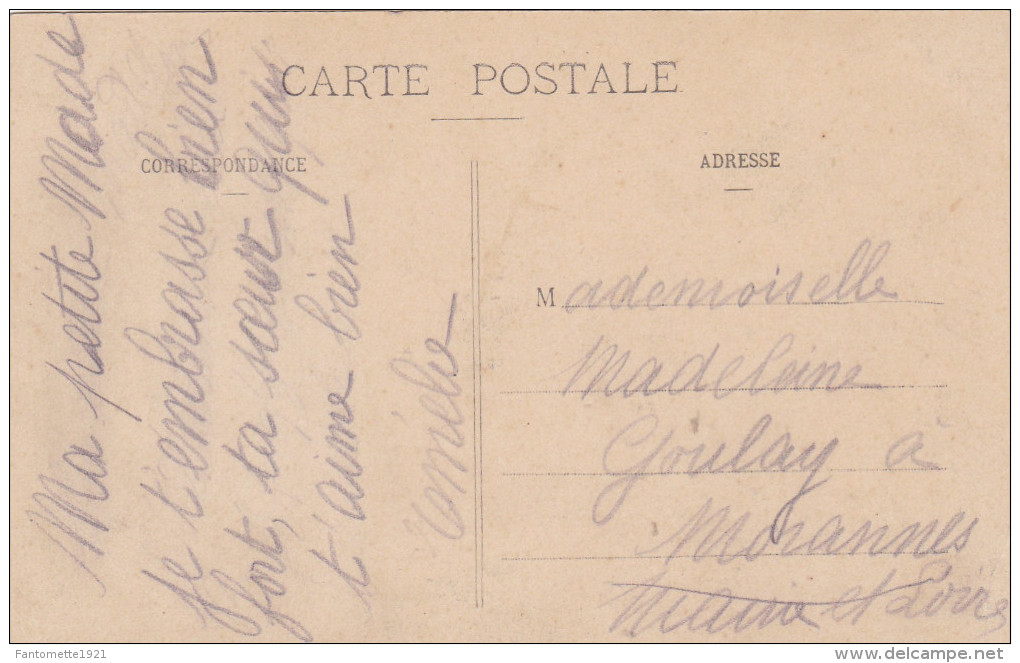 CARTE POSTALE
CORRESPONDANCE
Ma petite Made
Je t'embrasse bien
fort, ta sœur qui
t'aime bien
Emélie
ADRESSE
Mademoiselle
Madeleine
Goulay à
Morannes
Maine et Loire
Fantomette1921
delcampe.net